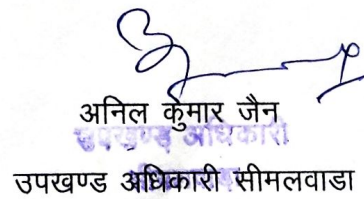 अनिल कुमार जैन
उपखण्ड अधिकारी
उपखण्ड अधिकारी सीमलवाडा